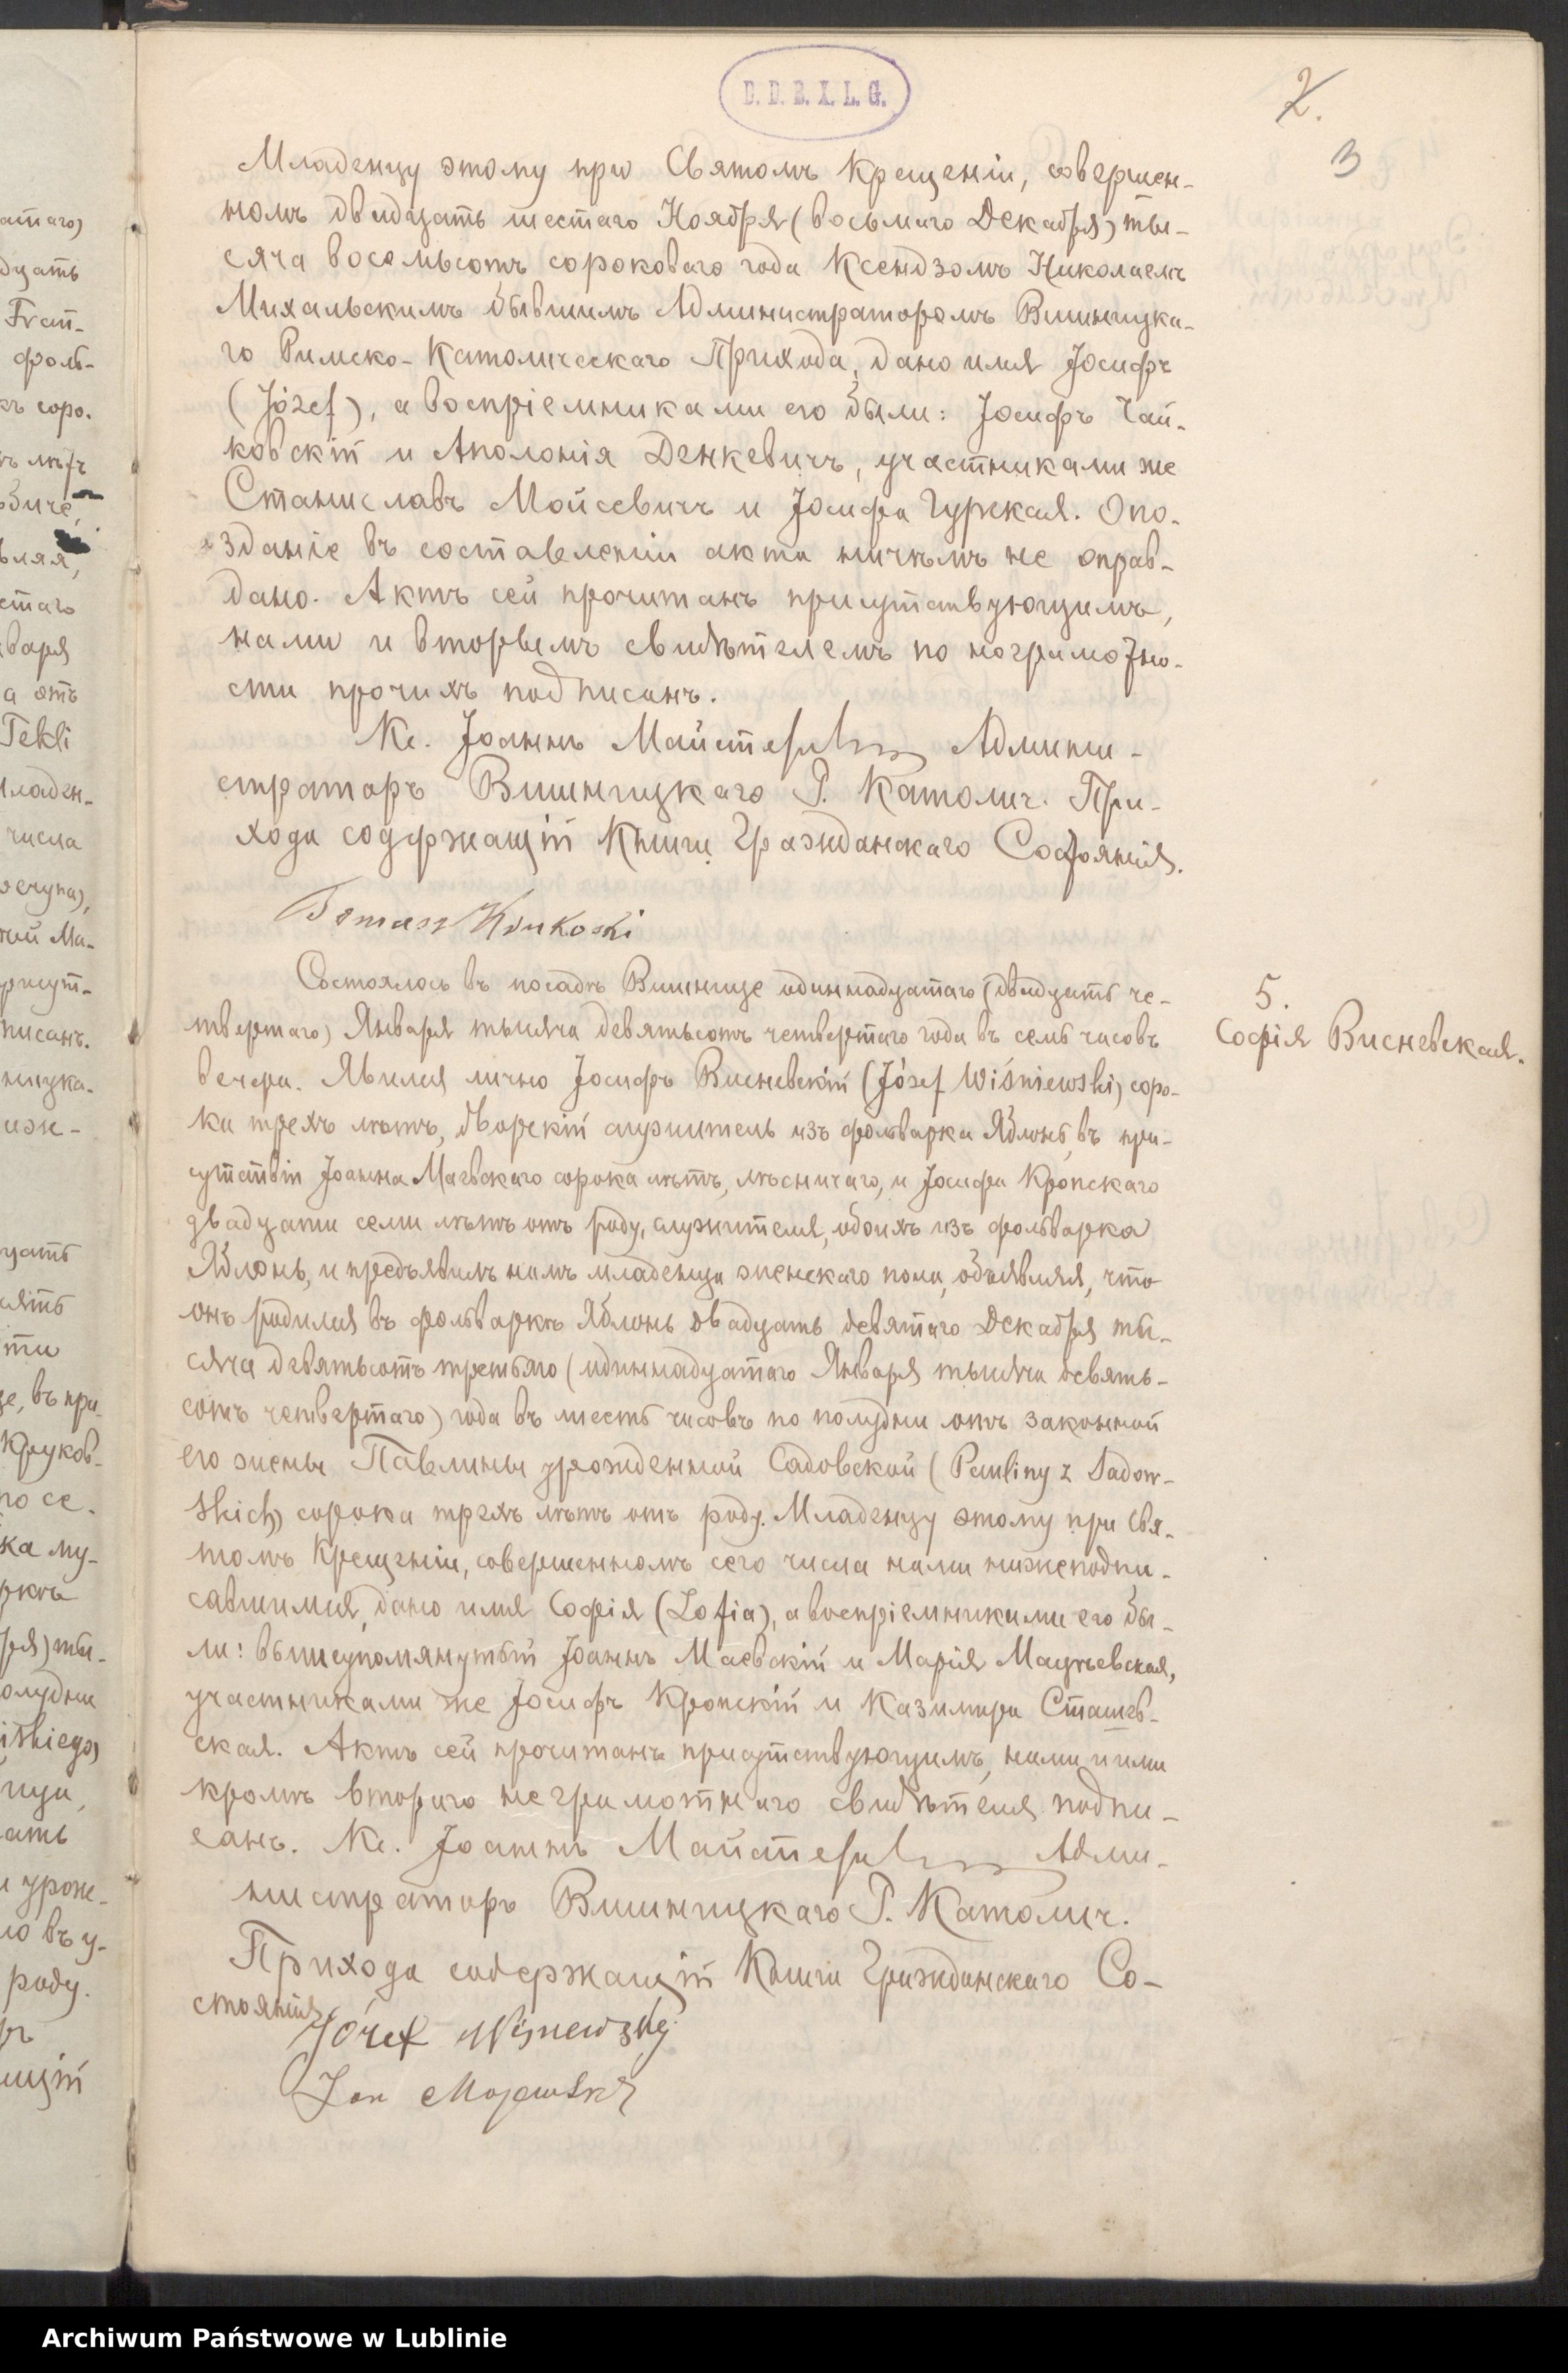 D.D.B.X.L.G.
2.
3
Младенцу этому при Святомъ Крещеніи, совершен-
номъ двадцать шестаго Ноября (восьмаго Декабря) ты-
сяча восемьсотъ сороковаго года Ксендзомъ Николаемъ
Михальскимъ бывшимъ Администраторомъ Вишницка-
го Римско-Католическаго Прихода, дано имя Іосифъ
(Józef), а воспріемниками его были: Іосифъ Чай-
ковскій и Аполонія Денкевичъ, участниками же
Станиславъ Мойсевичъ и Іосифа Гурская. Опо-
зданіе въ составленіи акта ничѣмъ не оправ-
дано. Актъ сей прочитанъ присутствующимъ,
нами и вторымъ свидѣтелемъ по неграмотно-
сти прочихъ подписанъ.
Кс. Іоаннъ Админи-
страторъ Вишницкаго Р. Католич. При-
хода содержащій Книги Гражданскаго Состоянія.
Tomasz
Состоялось въ посадѣ Вишнице одиннадцатаго (двадцать че-
твертаго) Января тысяча девятьсотъ четвертаго года въ семь часовъ
вечера. Явился лично Іосифъ Висневскій (Józef Wiśniewski) соро-
ка трехъ лѣтъ, дворскій служитель изъ фольварка Яблонь, въ при-
сутствіи Іоанна Маевскаго сорока лѣтъ, лѣсничаго, и Іосифа Кропскаго
двадцати семи лѣтъ отъ роду, служителя, обоихъ изъ фольварка
Яблонь, и предъявилъ намъ младенца женскаго пола, объявляя, что
онъ родился въ фольваркѣ Яблонь двадцать девятаго Декабря ты-
сяча девятьсотъ третьяго (одиннадцатаго Января тысяча девять-
сотъ четвертаго) года въ шесть часовъ по полудни отъ законной
его жены Павлины урожденной Садовской (Pauliny z Sadow-
skich) сорока трехъ лѣтъ отъ роду. Младенцу этому при Свя-
томъ Крещеніи, совершенномъ сего числа нами нижеподпи-
савшимся, дано имя Софія (Zofia), а воспріемниками его бы-
ли: вышеупомянутый Іоаннъ Маевскій и Марія Мацѣевская,
участниками же Іосифъ Кропскій и Казимира Сташев-
ская. Актъ сей прочитанъ присутствующимъ, нами и ими
кромѣ втораго неграмотнаго свидѣтеля подпи-
санъ. Кс. Іоаннъ Адми-
нистраторъ Вишницкаго Р. Католич.
Прихода содержащій Книги Гражданскаго Со-
стоянія
Józef
Jan
5.
Софія Висневская.
Archiwum Państwowe w Lublinie